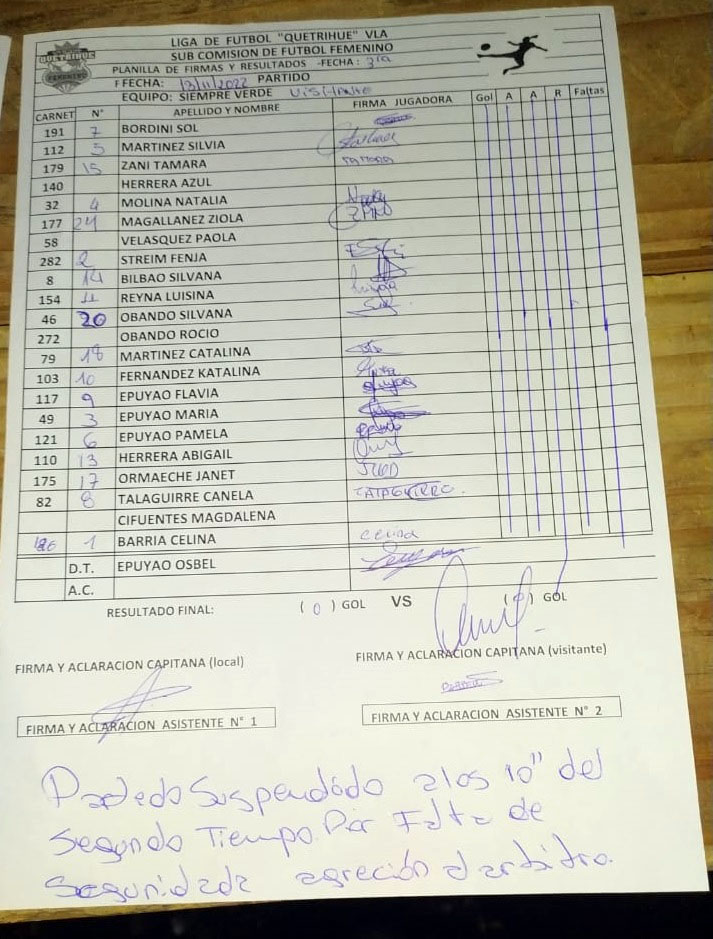 QUETRIHUE
FEMENINO
LIGA DE FUTBOL "QUETRIHUE" VLA
SUB COMISION DE FUTBOL FEMENINO
PLANILLA DE FIRMAS Y RESULTADOS -FECHA: 3ra
FFECHA: 13/11/2022 PARTIDO
EQUIPO: SIEMPRE VERDE VISITANTE
CARNET N° APELLIDO Y NOMBRE FIRMA JUGADORA Gol A A R Faltas
191 7 BORDINI SOL
112 5 MARTINEZ SILVIA
179 15 ZANI TAMARA TAMARA
140 HERRERA AZUL
32 4 MOLINA NATALIA
177 24 MAGALLANEZ ZIOLA
58 VELASQUEZ PAOLA
282 2 STREIM FENJA
8 14 BILBAO SILVANA
154 11 REYNA LUISINA
46 20 OBANDO SILVANA
272 OBANDO ROCIO
79 18 MARTINEZ CATALINA
103 10 FERNANDEZ KATALINA
117 9 EPUYAO FLAVIA
49 3 EPUYAO MARIA
121 6 EPUYAO PAMELA
110 13 HERRERA ABIGAIL
175 17 ORMAECHE JANET
82 8 TALAGUIRRE CANELA
CIFUENTES MAGDALENA
1 BARRIA CELINA celina
D.T. EPUYAO OSBEL
A.C.
RESULTADO FINAL: ( 0 ) GOL VS ( ) GOL
FIRMA Y ACLARACION CAPITANA (local) FIRMA Y ACLARACION CAPITANA (visitante)
FIRMA Y ACLARACION ASISTENTE N° 1 FIRMA Y ACLARACION ASISTENTE N° 2
Partedo Suspendido alos 10" del
Segundo Tiempo. Por Falta de
Seguridada agreción al arbitro.